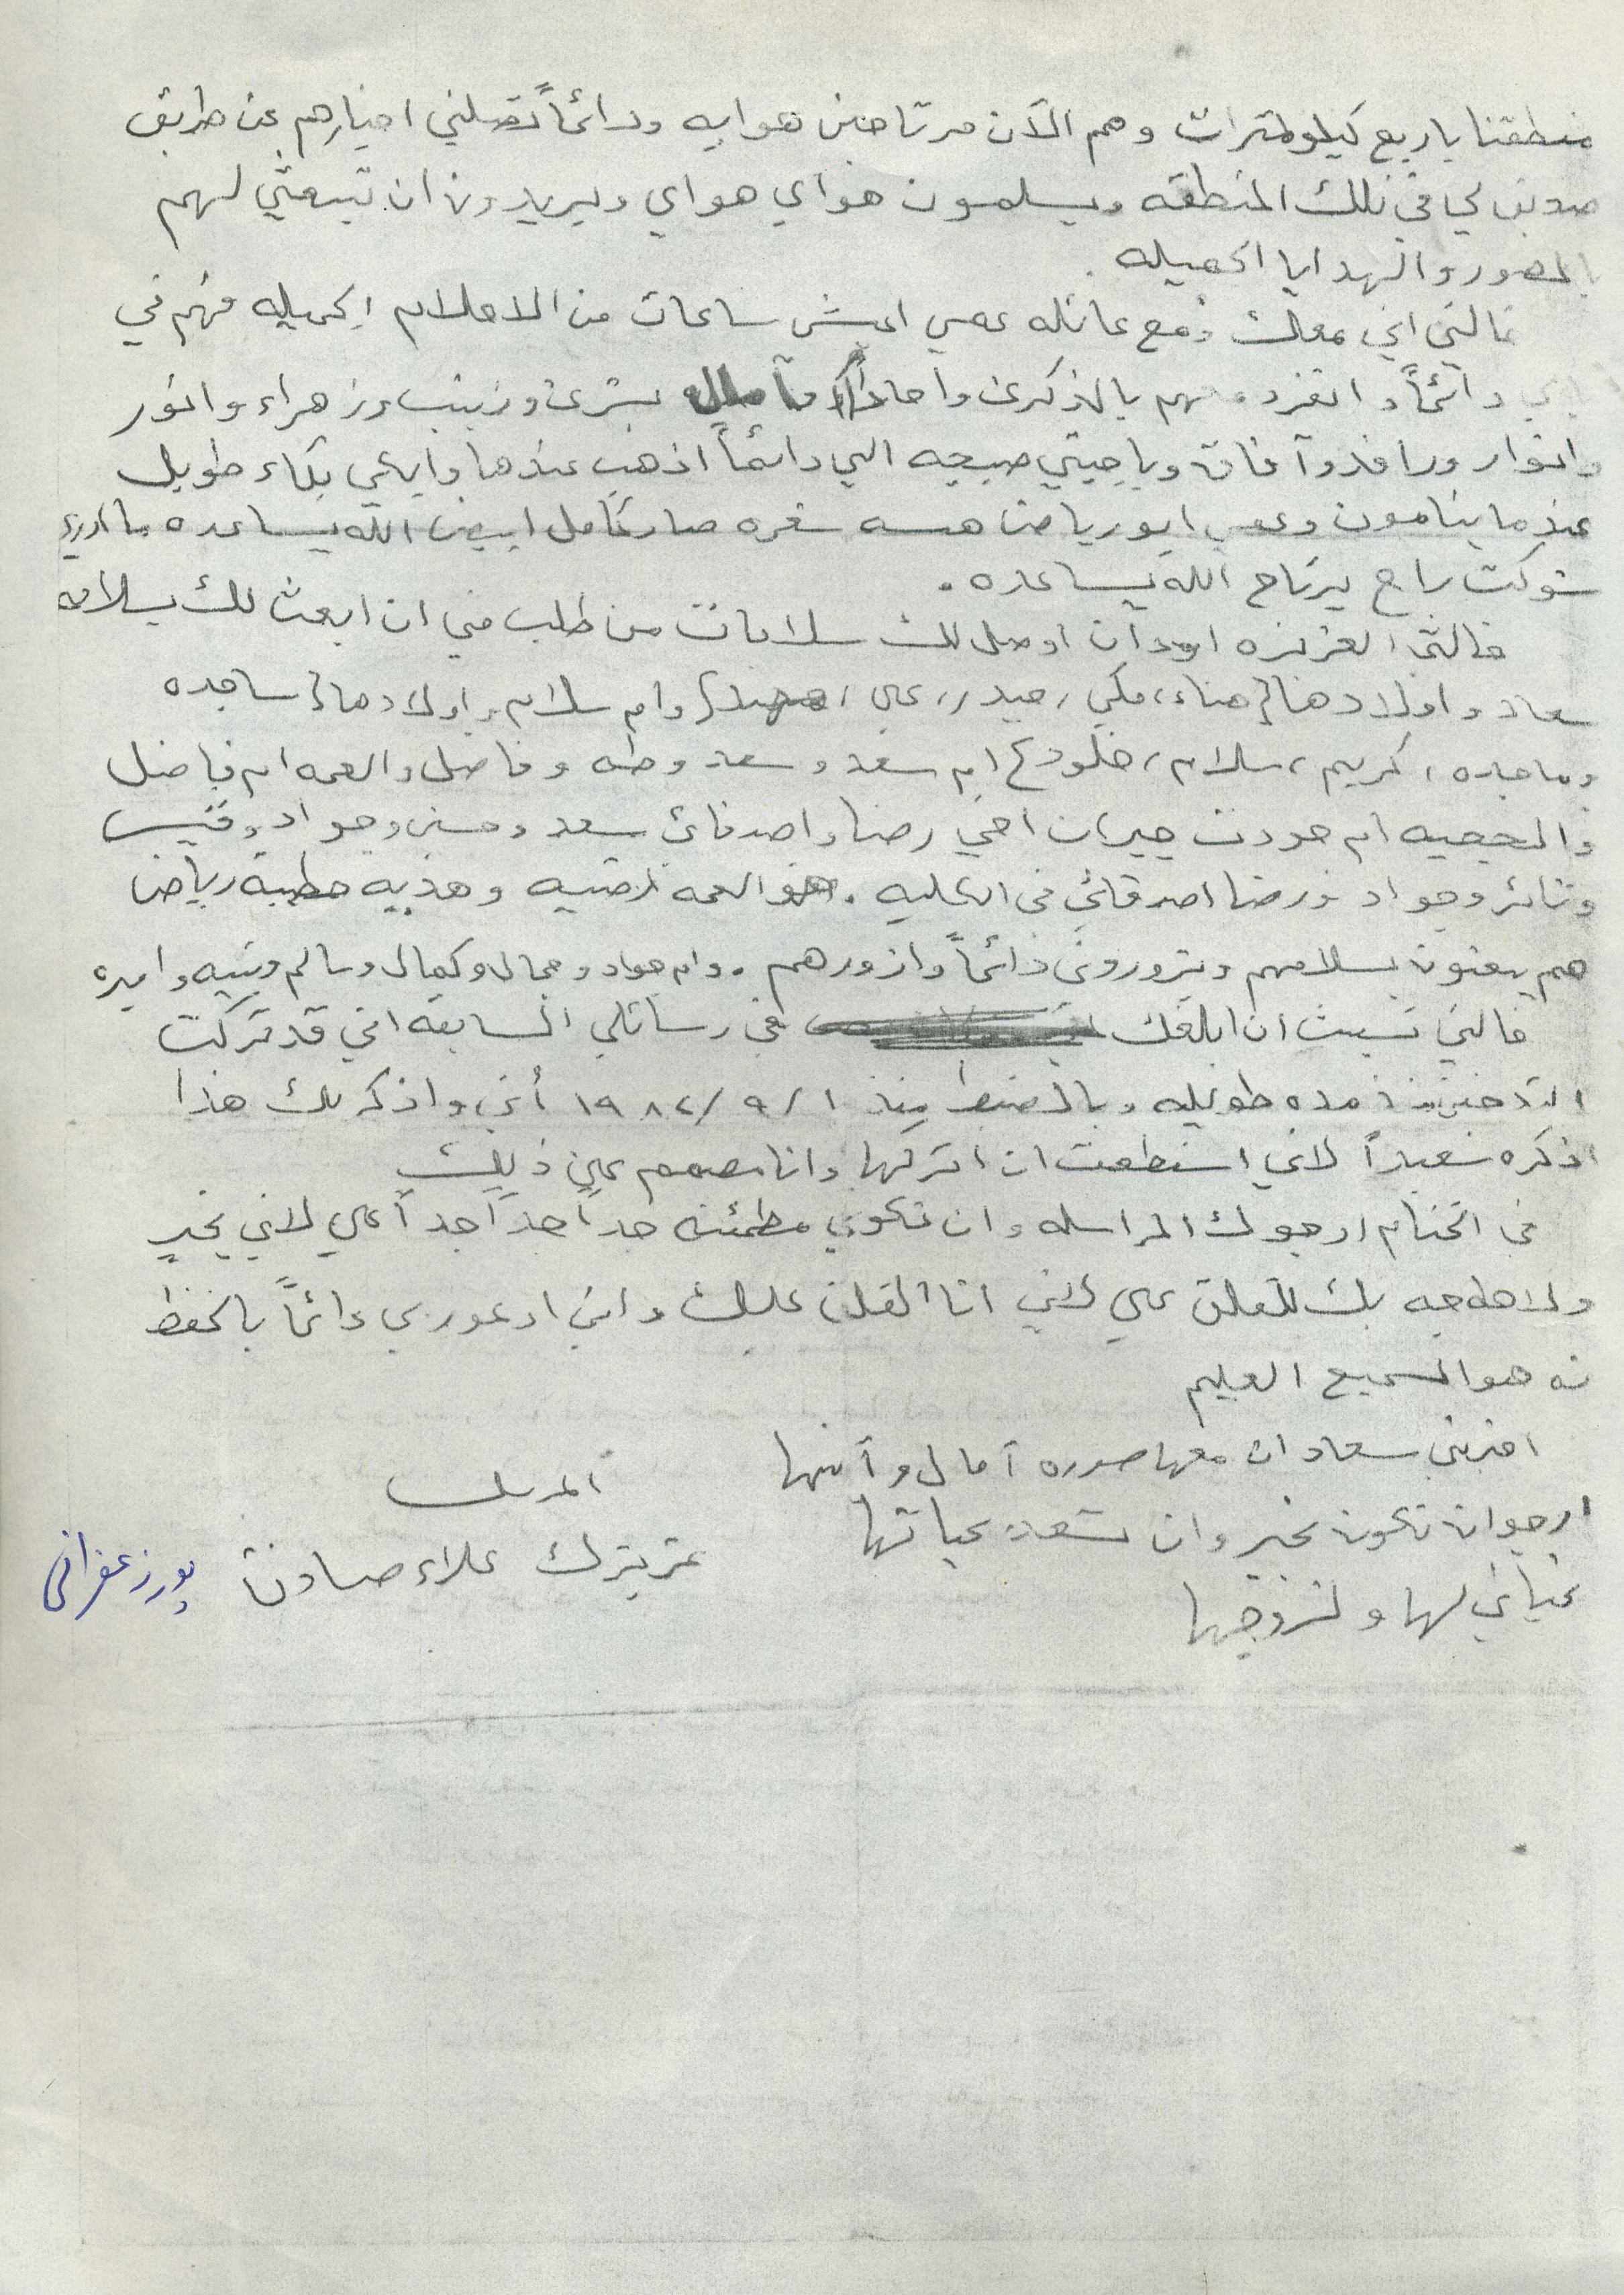 منطقتنا باربع كيلومترات وهم الآن مرتاحين هوايه ودائماً تصلني اخبارهم عن طريق
صديق لي في تلك المنطقه ويسلمون هواي هواي ويريدون ان تبعثي لهم
بالصور والهدايا الجميله .
خالتي اني معك ومع عائله عمي اعيش ساعات من الاحلام الجميله فهم في
دائماً و انفرد معهم بالذكرى واحاكي آمال بشرى وزينب وزهراء وانور
وانوار ورافد وآفاق وياجيتي صبيحه التي دائماً اذهب عندها وابكي بكاء طويل
عندما ينامون وعمي ابو رياض هسه شعره صار كامل ابيض الله يساعده ما ادري
شوكت راح يرتاح الله يساعده .
خالتي العزيزه اود ان اوصل لك سلامات من طلب مني ان ابعث لك بسلامه
سعاد واولادها { هناء ، مكي ، حيدر ، علي ، } وام سلام واولادها { ساجده
وماجده ، كريم ، سلام ، خلود } ام سعد وسعد وطه وفاضل والعمه ام فاضل
والحجيه ام جودت جيران اخي رضا واصدقائي سعد وحسن وجواد وقيس
وثائر وجواد ورضا اصدقائي في الكليه . والعمه راضيه وهديه خطيبة رياض
هم يبعثون بسلامهم ويزوروني دائماً وازورهم . وام جواد وجمال وكمال وسالم وبنيه واميره
خالتي نسيت ان ابلغك في رسائلي السابقه اني قد تركت
التدخين منذ مده طويله وبالضبط منذ ١ / ٩ / ١٩٨٢ أني واذكر لك هذا
اذكره سعيداً لاني استطعت ان اتركها وانا مصمم على ذلك
في الختام ارجو لك المراسله وان تكوني مطمئنه جداً جداً جداً علي لاني بخير
ولا حاجه بك للقلق علي لاني انا القلق عليك واني ادعو ربي دائماً بالحفظ
نه هو السميع العليم
اخبرتني سعاد ان معها صوره آمال وآبنها
ارجو ان تكون بخير وان تسعد بحياتها
تحياتي لها ولزوجها
المرسل
عزيزك علاء صادق پورزعفرانی